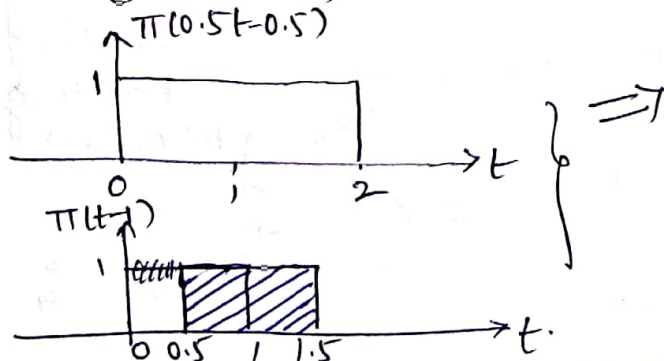 Π(0.5t-0.5)
1
t
0 1 2
Π(t-1)
1
0 0.5 1 1.5
t.